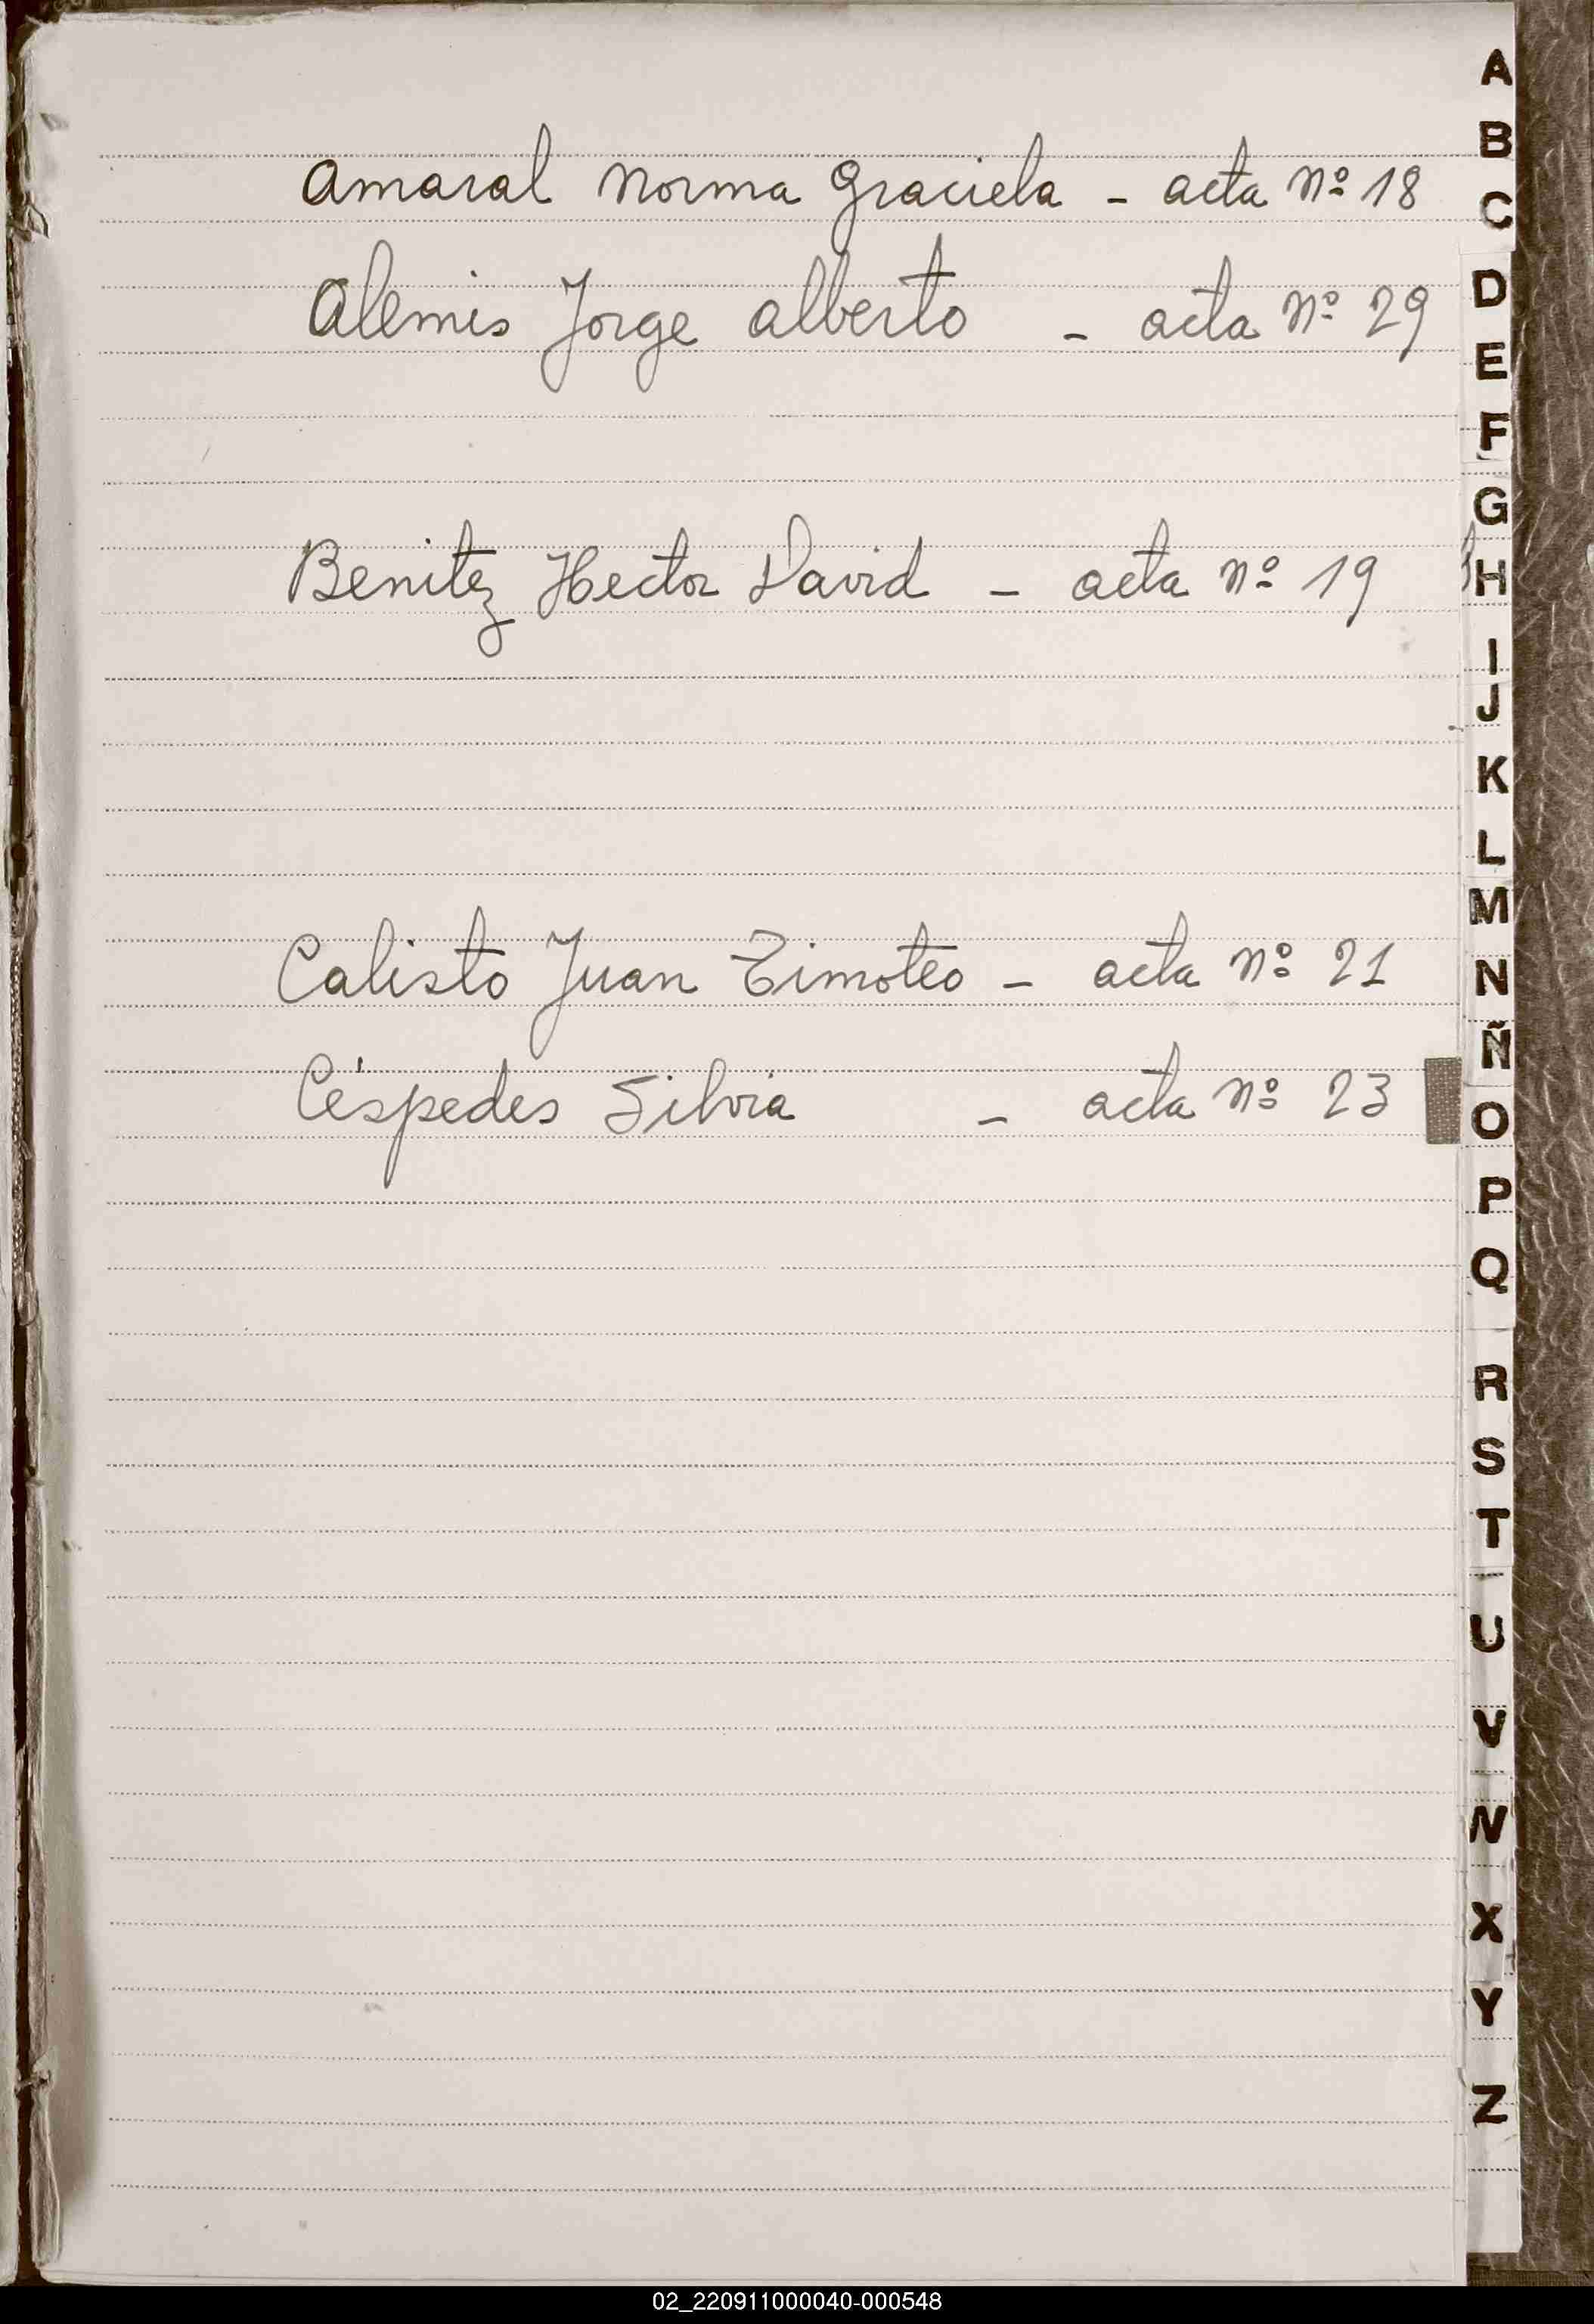 Amaral Norma Graciela - acta nº 18
Alemis Jorge Alberto - acta nº 29
Benitez Hector David - acta nº 19
Calisto Juan Timoteo - acta nº 21
Céspedes Silvia - acta nº 23
A
B
C
D
E
F
G
H
I
J
K
L
M
N
Ñ
O
P
Q
R
S
T
U
V
W
X
Y
Z
02_220911000040-000548